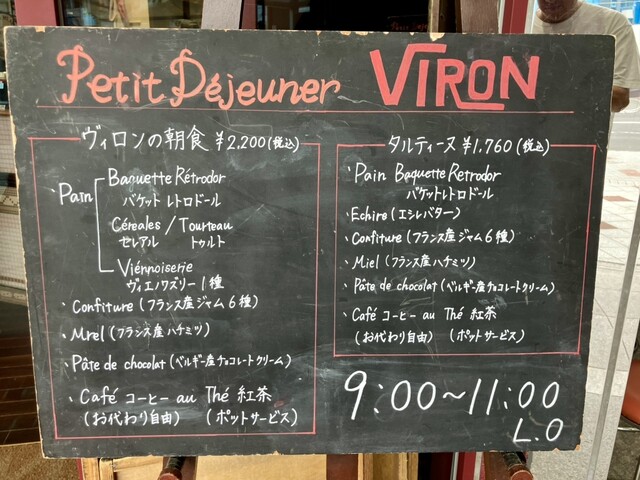 Petit Déjeuner VIRON
ヴィロンの朝食 ¥2,200(税込)
Pain
Baguette Rétrodor
バケット レトロドール
Céreales / Tourteau
セレアル トゥルト
Viénnoiserie
ヴィエノワズリー1種
・Confiture (フランス産ジャム6種)
・Mrel (フランス産ハチミツ)
・Pâte de chocolat (ベルギー産チョコレートクリーム)
・Café コーヒー au Thé 紅茶
(お代わり自由) (ポットサービス)
タルティーヌ ¥1,760(税込)
・Pain Baguette Retrodor
バケットレトロドール
・Echire (エシレバター)
・Confiture (フランス産ジャム6種)
・Miel (フランス産ハチミツ)
・Pâte de chocolat (ベルギー産チョコレートクリーム)
・Café コーヒー au Thé 紅茶
(お代わり自由) (ポットサービス)
9:00~11:00
L.O